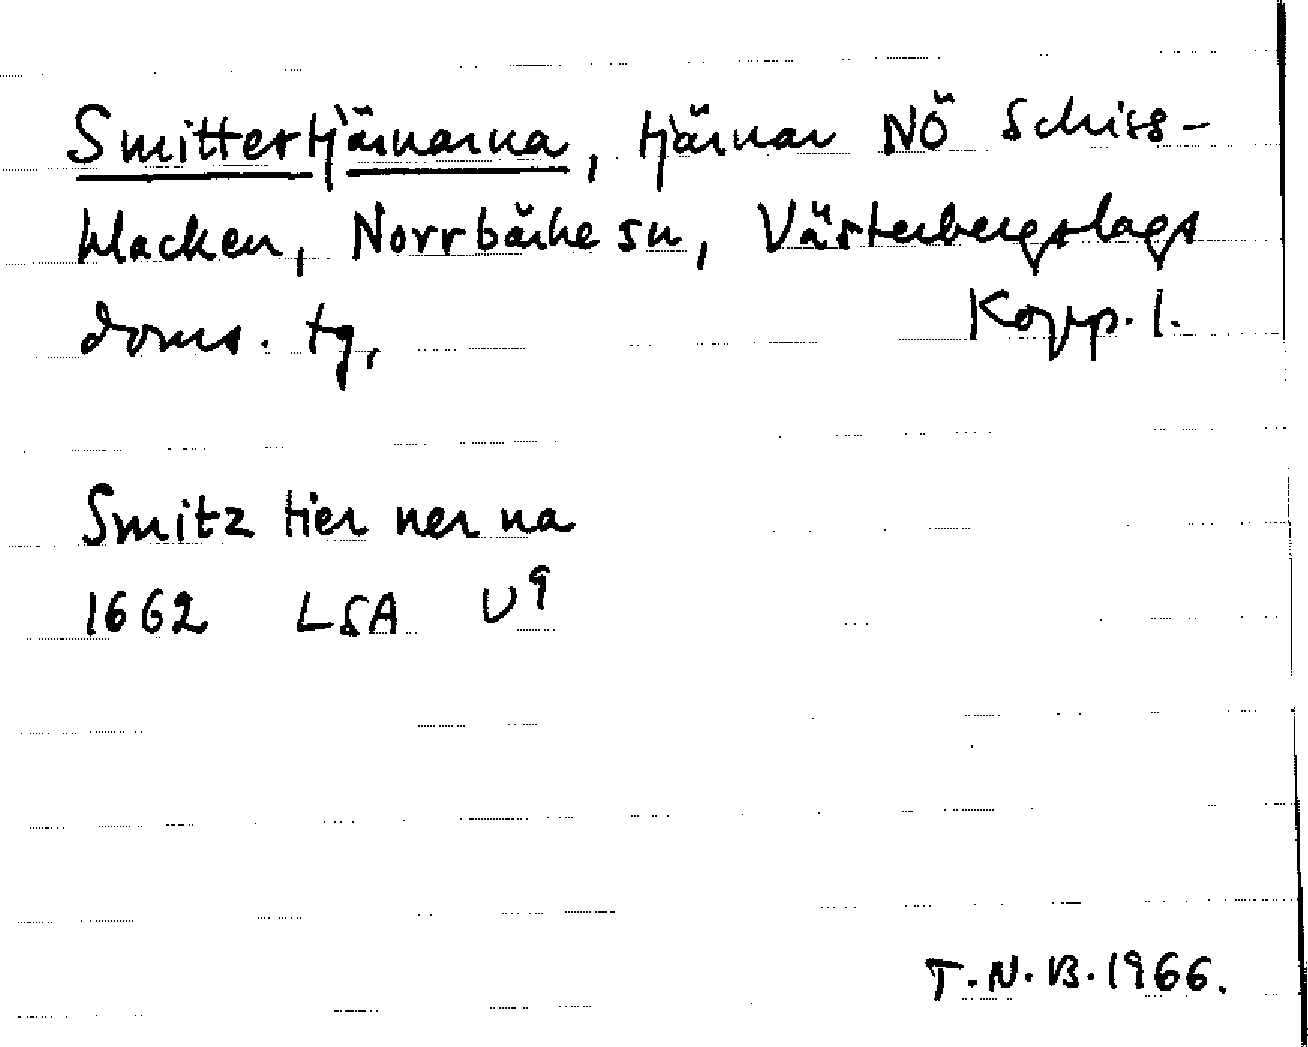 Smittertjärnarna, tjärnar NÖ Schiss-
klacken, Norrbärke sn, Västerbergslags
doms. tg, Kopp. l.
Smitz tier ner na
1662 LSA U9
T.N.B. 1966.